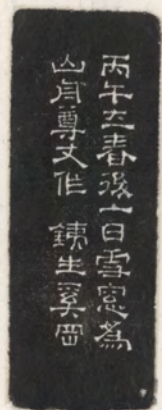 丙午立春後一日雪窓為
山舟尊丈作 銕生奚岡